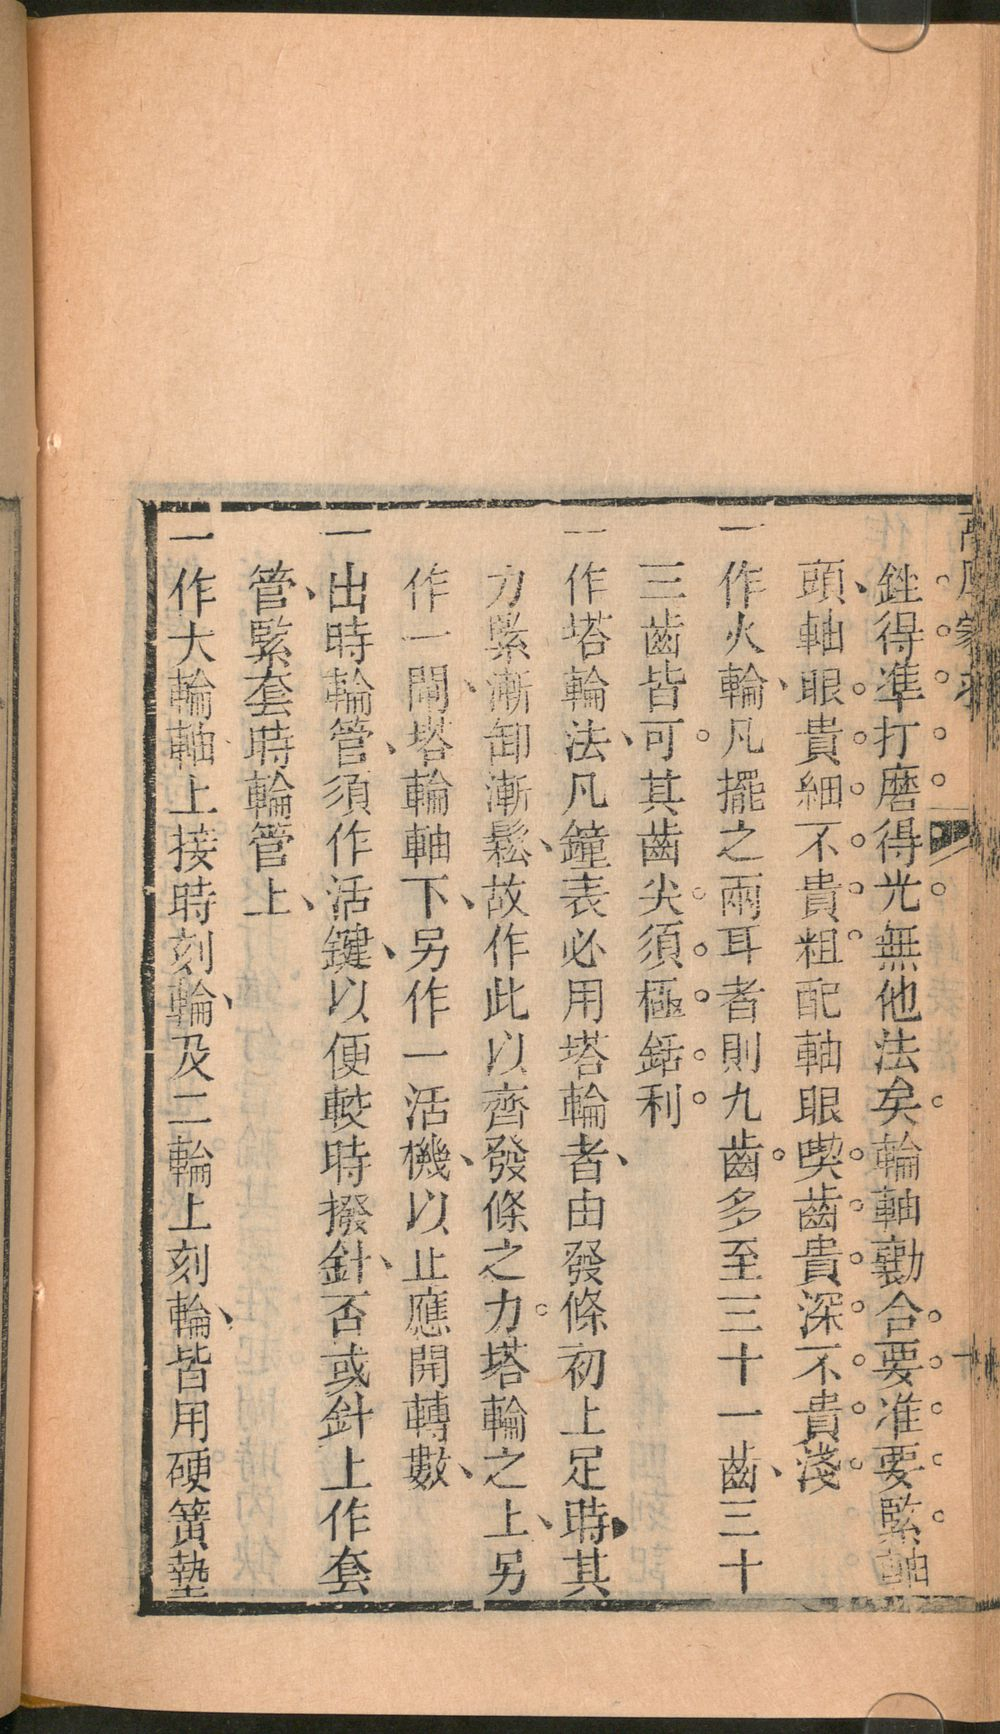 銼得準打磨得光無他法矣輪軸勷合要准要緊軸
頭軸眼貴細不貴粗配軸眼喫齒貴深不貴淺
一作火輪凡擺之兩耳者則九齒多至三十一齒三十
三齒皆可其齒尖須極銛利
一作塔輪法凡鐘表必用塔輪者由發條初上足時其
力緊漸卸漸鬆故作此以齊發條之力塔輪之上另
作一閘塔輪軸下另作一活機以止應開轉數
一出時輪管須作活鍵以便較時撥針否或針上作套
管緊套時輪管上
一作大輪軸上接時刻輪及二輪上刻輪皆用硬簧墊